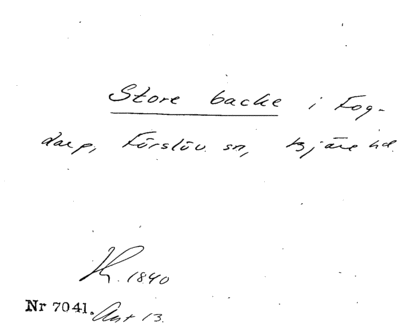 Store backe i Fog-
darp, Förslöv sn, Bjäre hd.
K. 1840
Nr 7041. Ant 13.